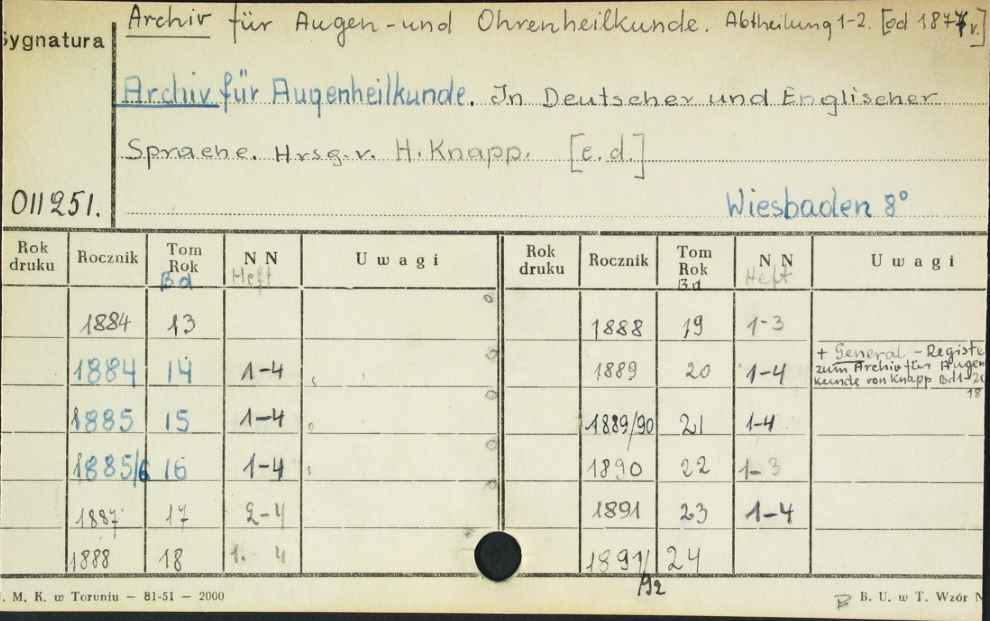 Archiv für Augen-und Ohrenheilkunde. Abtheilung 1-2. [od 187 v.]
Sygnatura
Archiv für Augenheilkunde. In Deutscher und Englischer
Sprache. Hrsg. v. H. Knapp. [e.d.]
011251.
Wiesbaden 8°
Rok druku Rocznik Tom Rok Bd NN Heft Uwagi Rok druku Rocznik Tom Rok Bd NN Heft Uwagi
1884 13 1888 19 1-3
1884 14 1-4 1889 20 1-4 + General-Registe
zum Archiv für Augen
Kunde von Knapp Bd 1-20
18
1885 15 1-4 1889/90 21 1-4
1885/6 16 1-4 1890 22 1-3
1887 17 2-4 1891 23 1-4
1888 18 1. 4 1891/92 24
. M. K. w Toruniu — 81-51 — 2000
B. U. w T. Wzór N